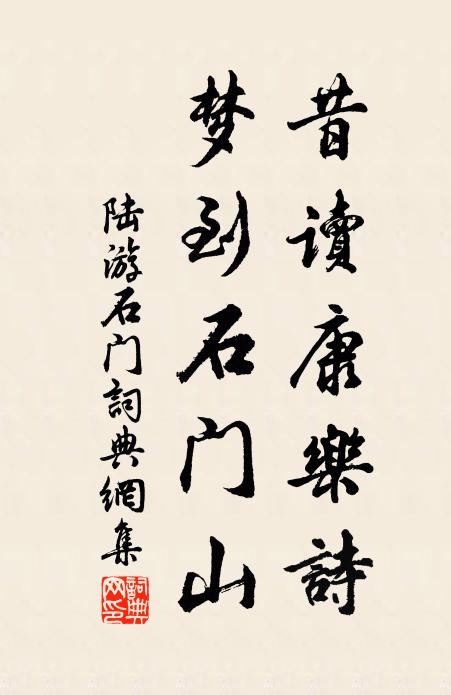 昔讀康樂詩
梦到石门山
陆游石门詞典網集
詞典网印